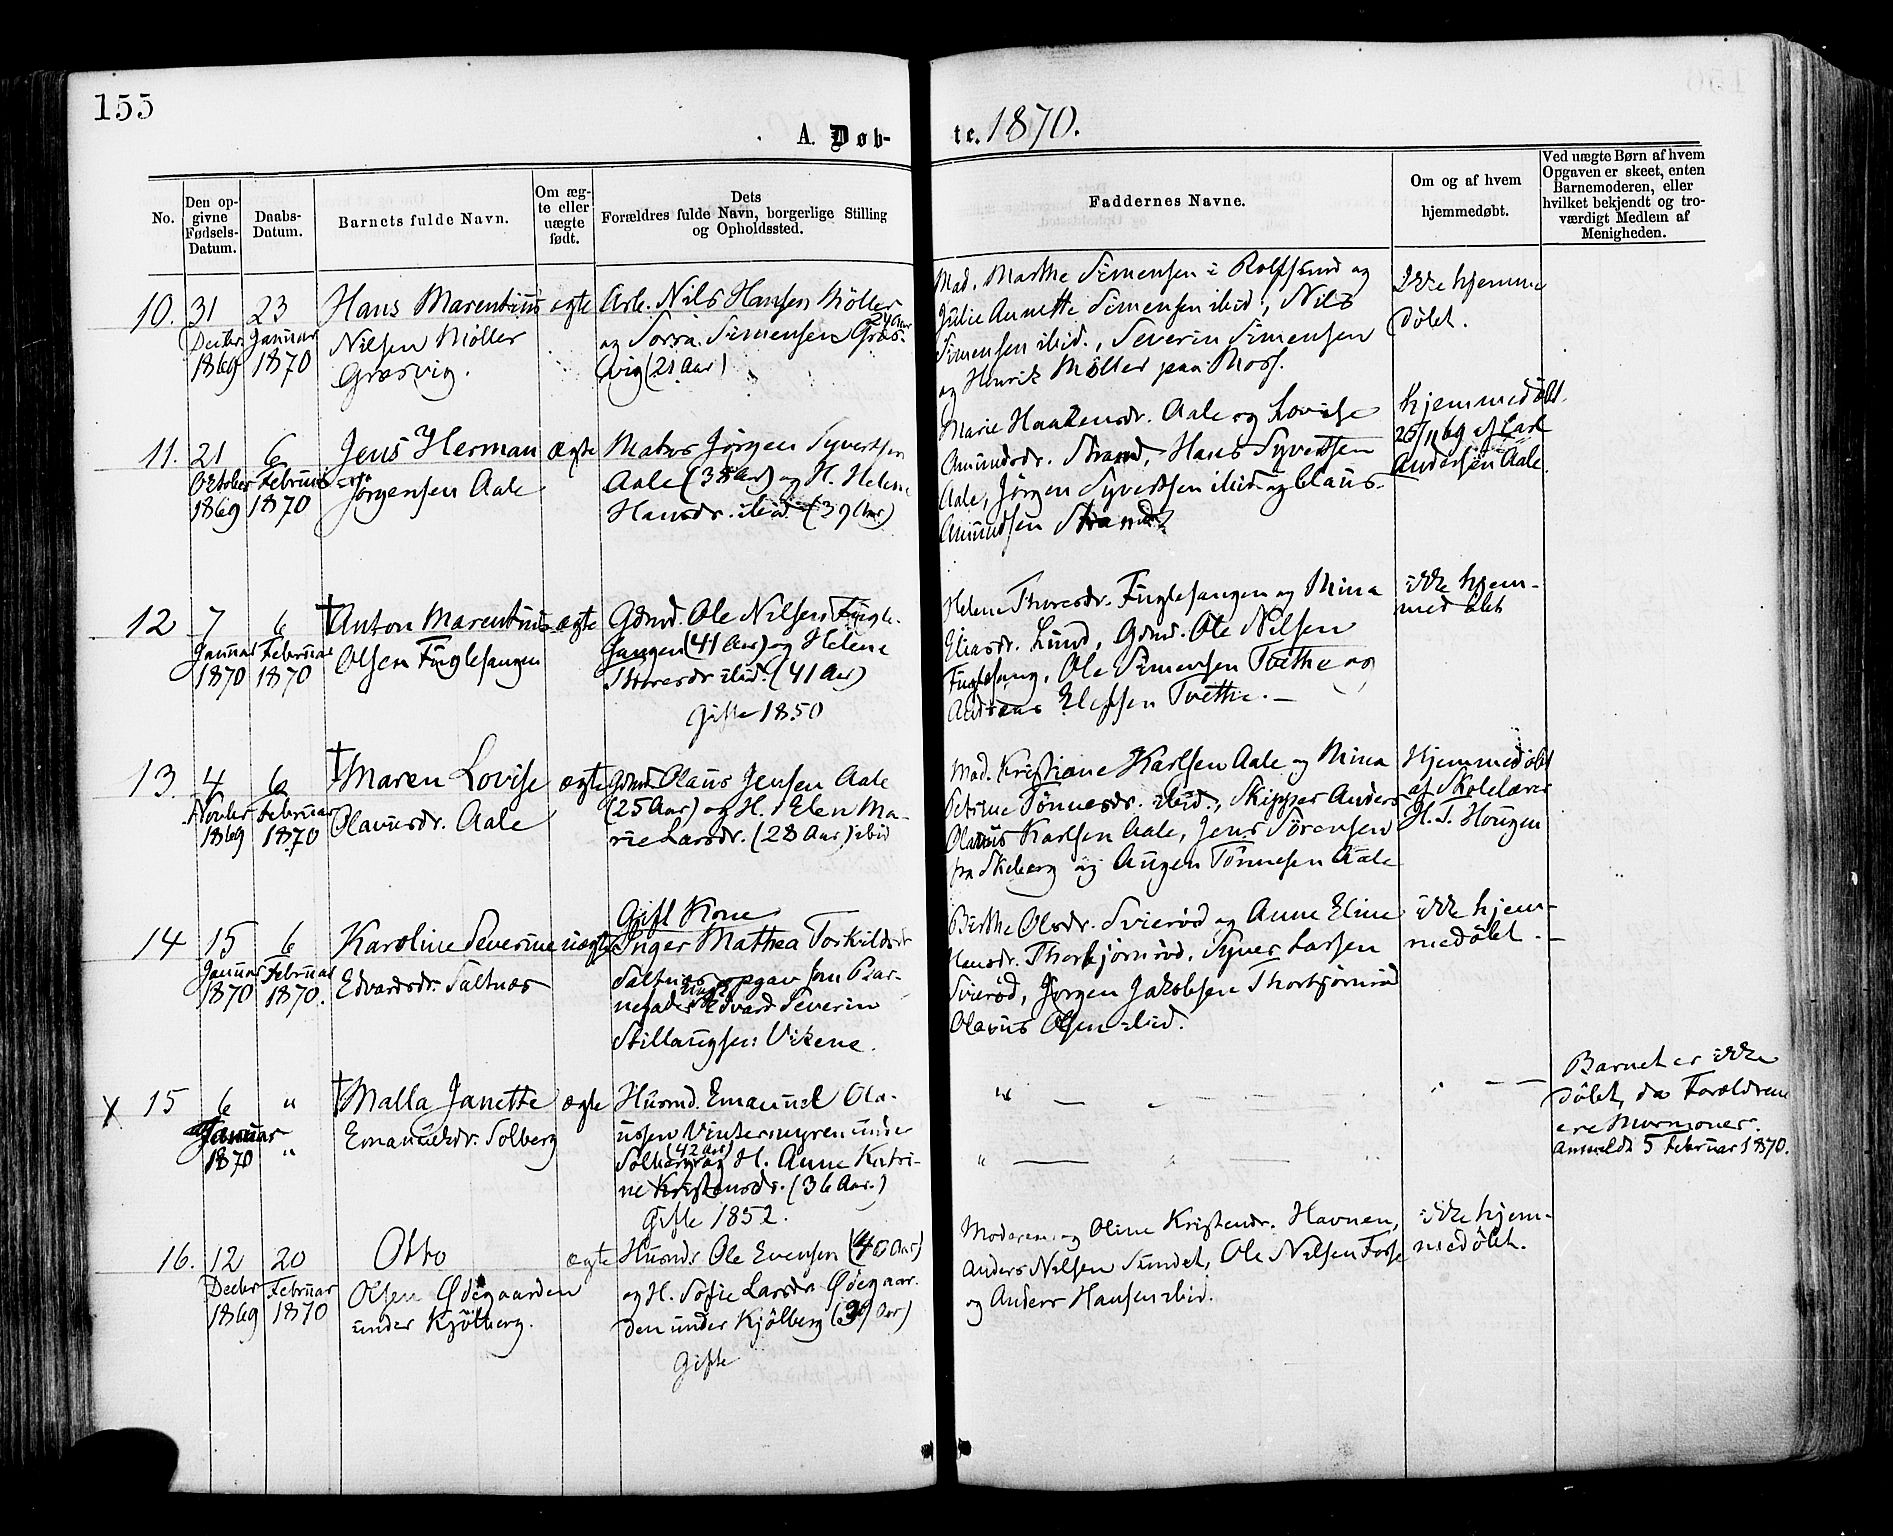 155
A. Døb-
te. 1870.
No.
Den op-
givne
Fødsels-
Datum.
Daabs-
Datum.
Barnets fulde Navn.
Om æg-
te eller
uægte
født.
Dets
Forældres fulde Navn, borgerlige Stilling
og Opholdssted.
Faddernes Navne.
Om og af hvem
hjemmedøbt.
Ved uægte Børn af hvem
Opgaven er skeet, enten
Barnemoderen, eller
hvilket bekjendt og tro-
værdigt Medlem af
Menigheden.
10.
31
Decbr
1869
23
Januar
1870
Hans Marentius
Nilsen Møller
Græsvig.
ægte
Arb. Nils Hansen Møller
24 Aar
og Simensen Græs-
vig (21 Aar)
Mad. Marthe Simensen i Rolfsund og
Julie Annette Simensen ibid., Nils
Simensen ibid., Severin Simensen
og Henrik Møller paa Moss.
Ikke hjemme
døbt.
11.
21
October
1869
6
Februar
1870
Jens Herman
Jørgensen Aale
ægte
Matros Jørgen Syvertsen
Aale (38 Aar) og H. Helene
Hansdr. ibid. (39 Aar)
Marie Haakensdr. Aale og Lovise
Amundsdr. Strand, Hans Syvertsen
Aale, Jørgen Syvertsen ibid og Claus
Amundsen Strand
hjemmedøbt
25/11 69 af Carl
Andersen Aale.
12
7
Januar
1870
6
Februar
1870
† Anton Marentius
Olsen Fuglesangen
ægte
Gdmd. Ole Nilsen Fugle-
sangen (41 Aar) og Helene
Thoresdr ibid. (41 Aar)
Gifte 1850
Helene Thoresdr. Fuglesangen og Mina
Eliasdr. Lund, Gdmd. Ole Nilsen
Fuglesang, Ole Simensen Tvethe og
Andreas Elefsen Tvethe. —
ikke hjem-
medøbt
13.
4
Novbr
1869
6
Februar
1870
† Maren Lovise
Olausdr. Aale
ægte
Gdmd. Olaus Jensen Aale
(25 Aar) og H. Elen Ma-
rie Larsdr. (28 Aar) ibid
Mad. Kristiane Karlsen Aale og Mina
Petrine Tønnesdr. ibid., Skipper Anders
Olaus Karlsen Aale, Jens Sørensen
fra Skeberg og Augen Tønnesen Aale
Hjemmedøbt
af Skolelærer
H. T. Hougen
14
15
Januar
1870
6
Februar
1870.
Karoline Severine
Edvardsdr. Saltnæs
uægte
Gift Kone
Inger Mathea Torkildsdr
Saltnæs opgav som Bar-
nefader Edvard Severin
Stillaugsen Vikene.
Birthe Olsdr. Svierød og Anne Eline
Hansdr. Thorbjørnrød, Syver Larsen
Svierød, Jørgen Jakobsen Thorbjørnrød
Olavus Olsen ibid.
ikke hjem-
medøbt. —
X 15
6
Januar
1870
"
"
† Malla Janette
Emanuelsdr. Solberg
ægte
Husmd. Emanuel Ola-
ussen Vintermyren under
(42 Aar)
Solberg og H. Anne Katri-
ne Kristensdr. (36 Aar.)
Gifte 1852.
Barnet er ikke
døbt, da Forældrene
ere Mormoner.
Anmeldt 5 Februar 1870.
16.
12
Decbr
1869
20
Februar
1870
Otto
Olsen Ødegaarden
under Kjølberg.
ægte
Husmd. Ole Evensen (40 Aar)
og H. Sofie Larsdr Ødegaar-
den under Kjølberg (39 Aar)
Gifte
Moderen og Oline Kristensdr. Havnen,
Anders Nilsen Sundet, Ole Nilsen Fosse
og Anders Hansen ibid.
ikke hjem-
medøbt.